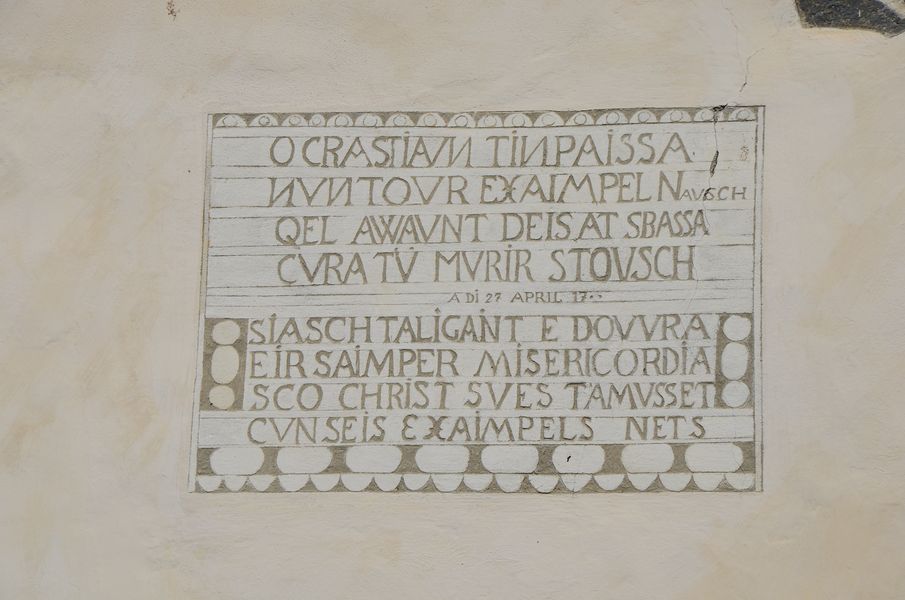 O CRASTIAUN TINPAISSA
NUNTOVR EXAIMPEL NAUSCH
QEL AWAUNT DEIS AT SBASSA
CVRA TÜ MVRIR STOVSCH
A DI 27 APRIL 17
SIASCH TALIGAINT E DOVVRA
E IR SAIMPER MISERICORDIA
SCO CHRIST SVES TAMVSSET
CVN SEIS EXAIMPELS NETS